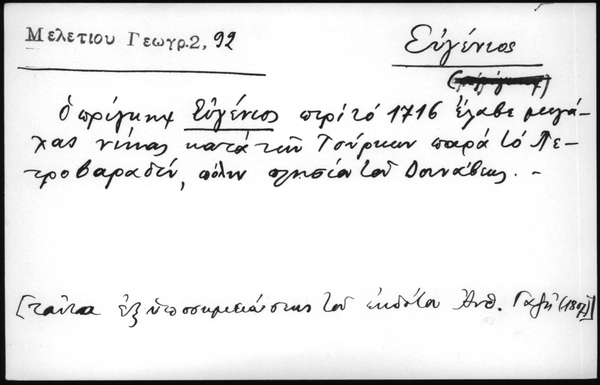 Μελετίου Γεωγρ. 2, 92
Εὐγένιος
Ὁ πρίγκηψ Εὐγένιος περὶ τὸ 1716 ἔλαβε μεγά-
λας νίκας κατὰ τῶν Τούρκων παρὰ τὸ Πε-
τροβαραδεῖν, πόλιν πλησίον τοῦ Δουνάβεως. –
[ταῦτα ἐξ ὑποσημειώσεως τοῦ ἐκδότου Ἀνθ. Γαζῆ (1807)]